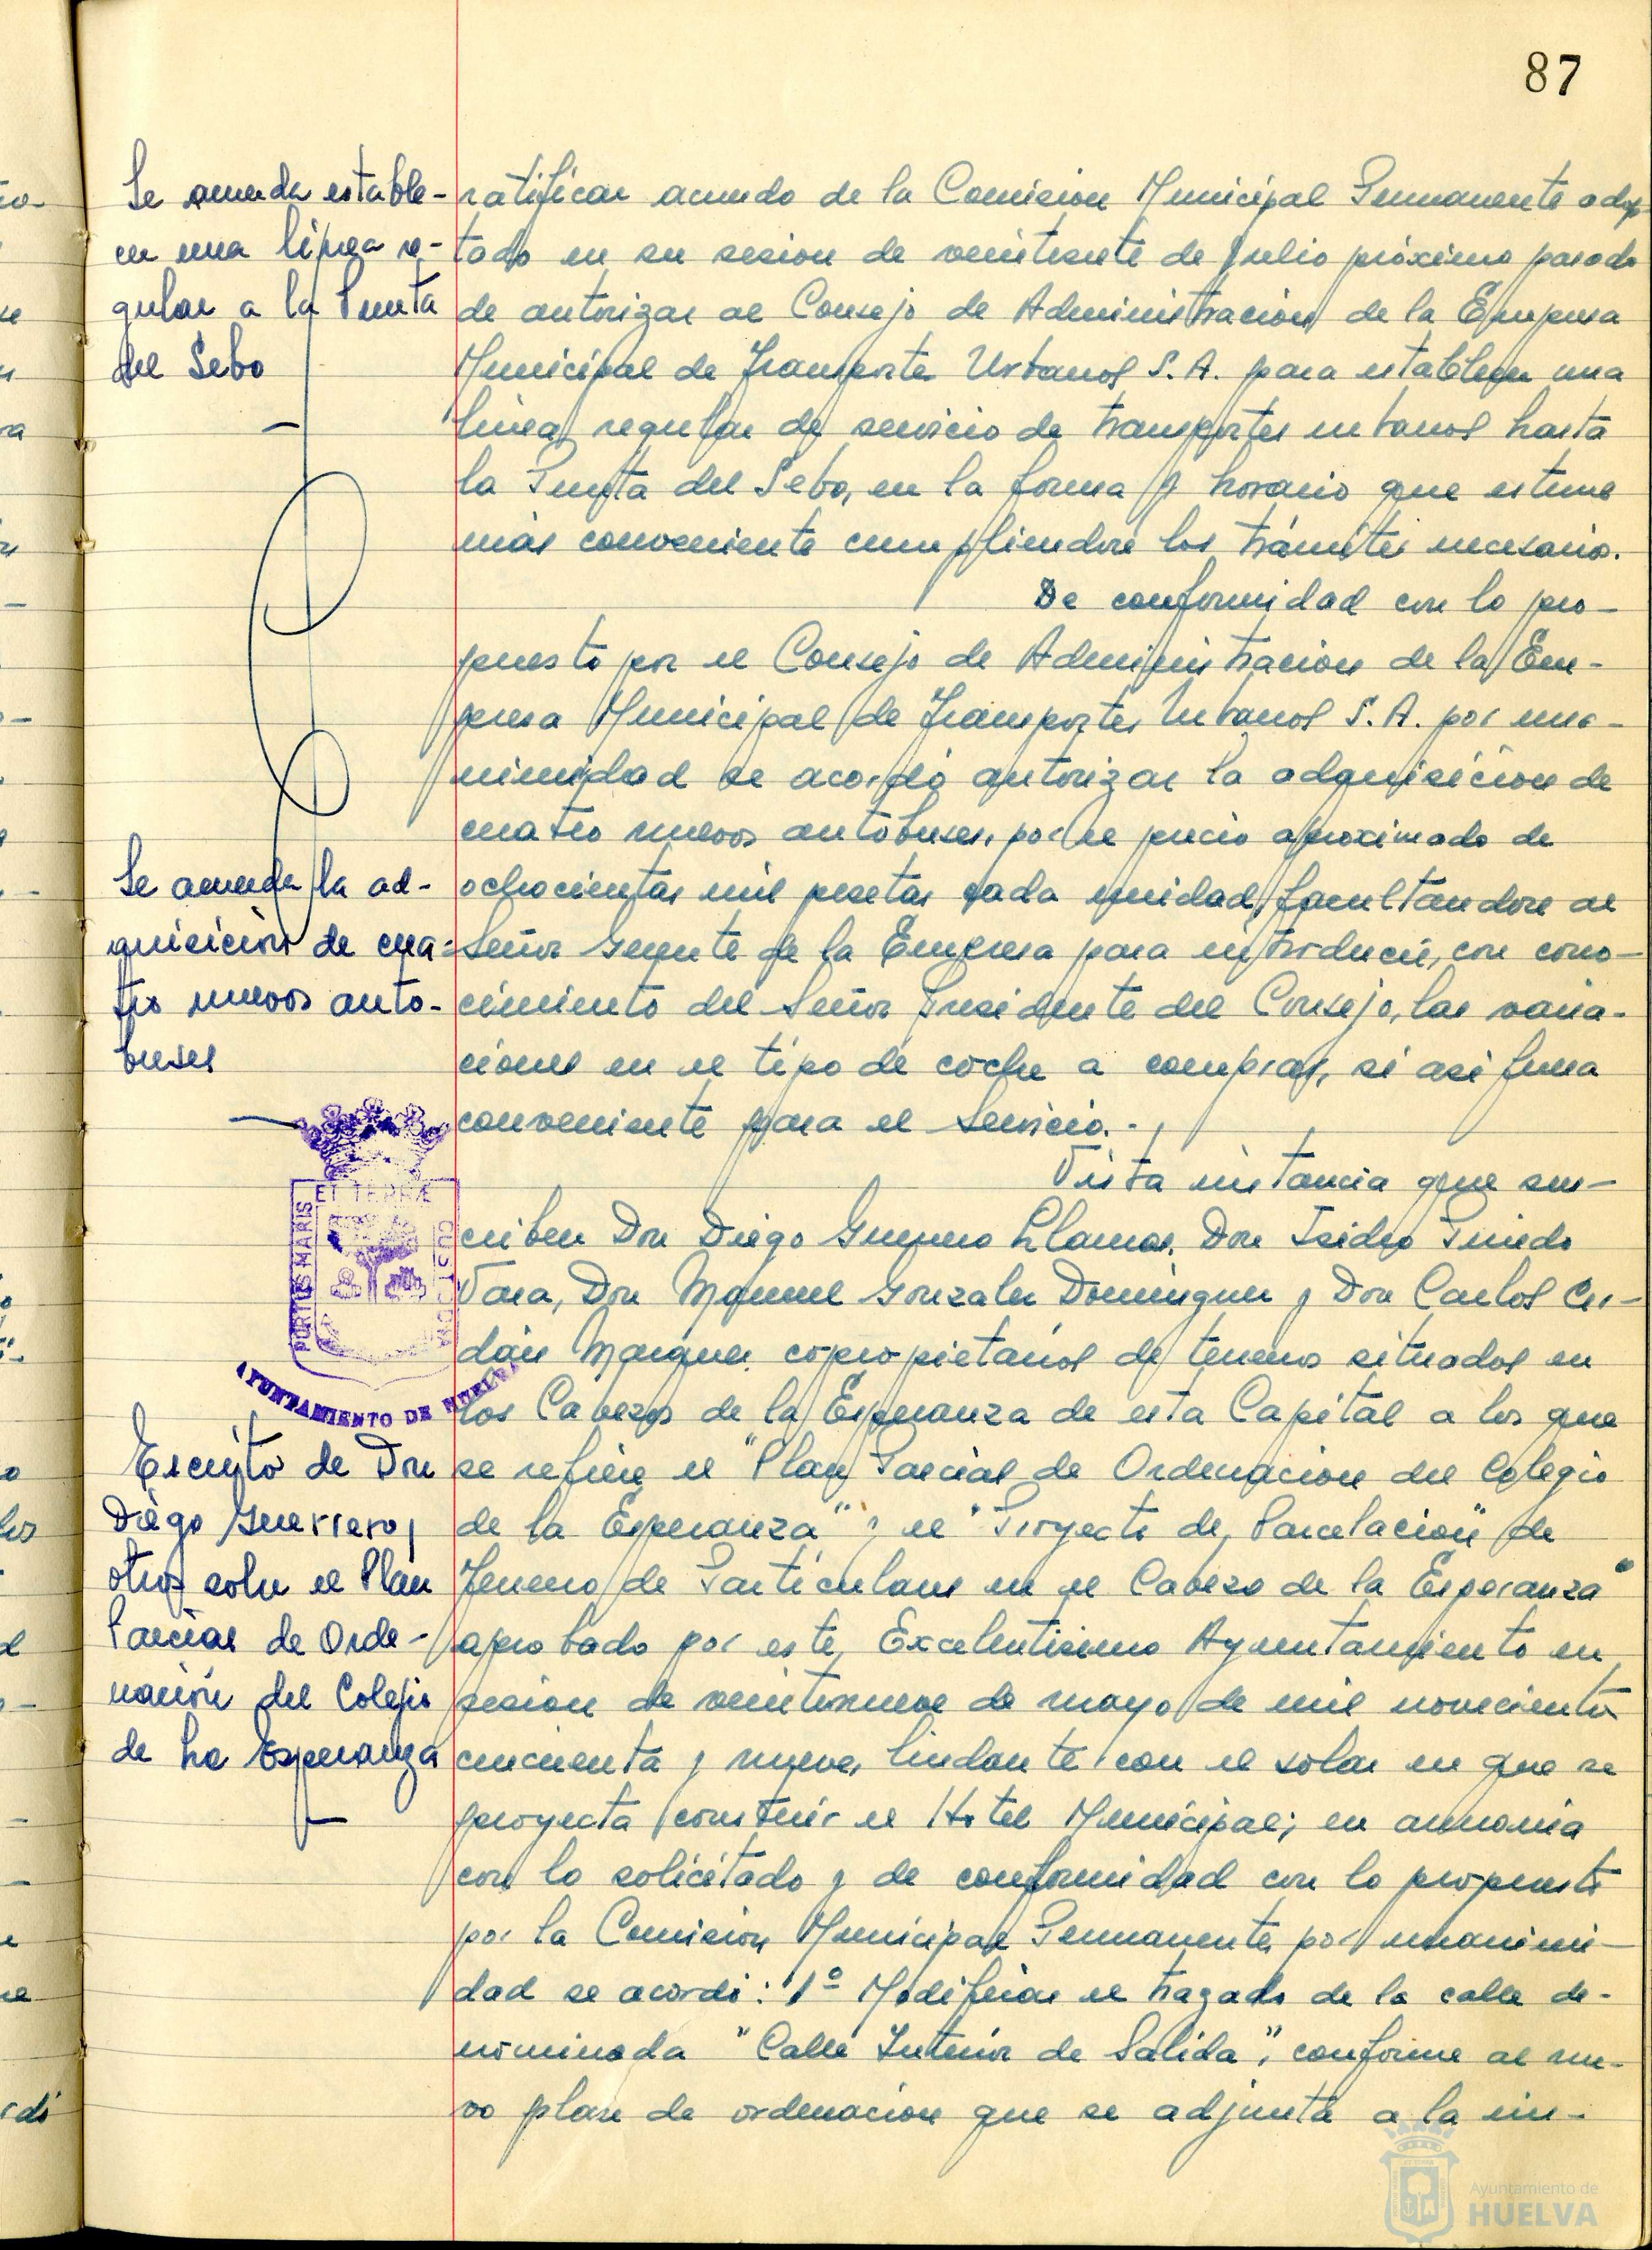 87
Se acuerda estable-
cer una línea re-
gular a la Punta
del Sebo
ratificar acuerdo de la Comision Municipal Permanente adop-
tado en su sesion de veintisiete de Julio próximo pasado
de autorizar al Consejo de Administración de la Empresa
Municipal de Transportes Urbanos S.A. para establecer una
linea regular de servicio de transportes urbanos hasta
la Punta del Sebo, en la forma y horario que estime
más conveniente cumpliendose los trámites necesarios.
De conformidad con lo pro-
puesto por el Consejo de Administracion de la Em-
presa Municipal de Transportes Urbanos S.A. por una-
nimidad se acordó autorizar la adquisicion de
cuatro nuevos autobuses, por el precio aproximado de
Se acuerda la ad-
quisición de cua-
tro nuevos auto-
buses
ochocientas mil pesetas cada unidad, facultandose al
Señor Gerente de la Empresa para introducir, con cono-
cimiento del Señor Presidente del Consejo, las varia-
ciones en el tipo de coche a comprar, si asi fuera
conveniente para el Servicio.-
Vista instancia que sus-
criben Don Diego Guerrero Llamas, Don Isidro Pinedo
Vara, Don Manuel Gonzalez Dominguez y Don Carlos Cer-
dán Marquez, copropietarios de terrenos situados en
los Cabezos de la Esperanza de esta Capital a los que
PORTUS MARIS
ET TERRÆ
CUSTODIA
AYUNTAMIENTO DE HUELVA
Escrito de Don
Diego Guerrero y
otros sobre el Plan
Parcial de Orde-
nación del Colegio
de La Esperanza
se refiere el "Plan Parcial de Ordenacion del Colegio
de la Esperanza" y el "Proyecto de Parcelación de
Terreno de Particulares en el Cabezo de la Esperanza"
aprobado por este Excelentisimo Ayuntamiento en
sesion de veintinueve de mayo de mil novecientos
cincuenta y nueve, lindante con el solar en que se
proyecta construir el Hotel Municipal; en armonia
con lo solicitado y de conformidad con lo propuesto
por la Comision Municipal Permanente, por unanimi-
dad se acordó: 1º Modificar el trazado de la calle de-
nominada "Calle Interior de Salida", conforme al nue-
vo plan de ordenacion que se adjunta a la ins-
Ayuntamiento de
HUELVA